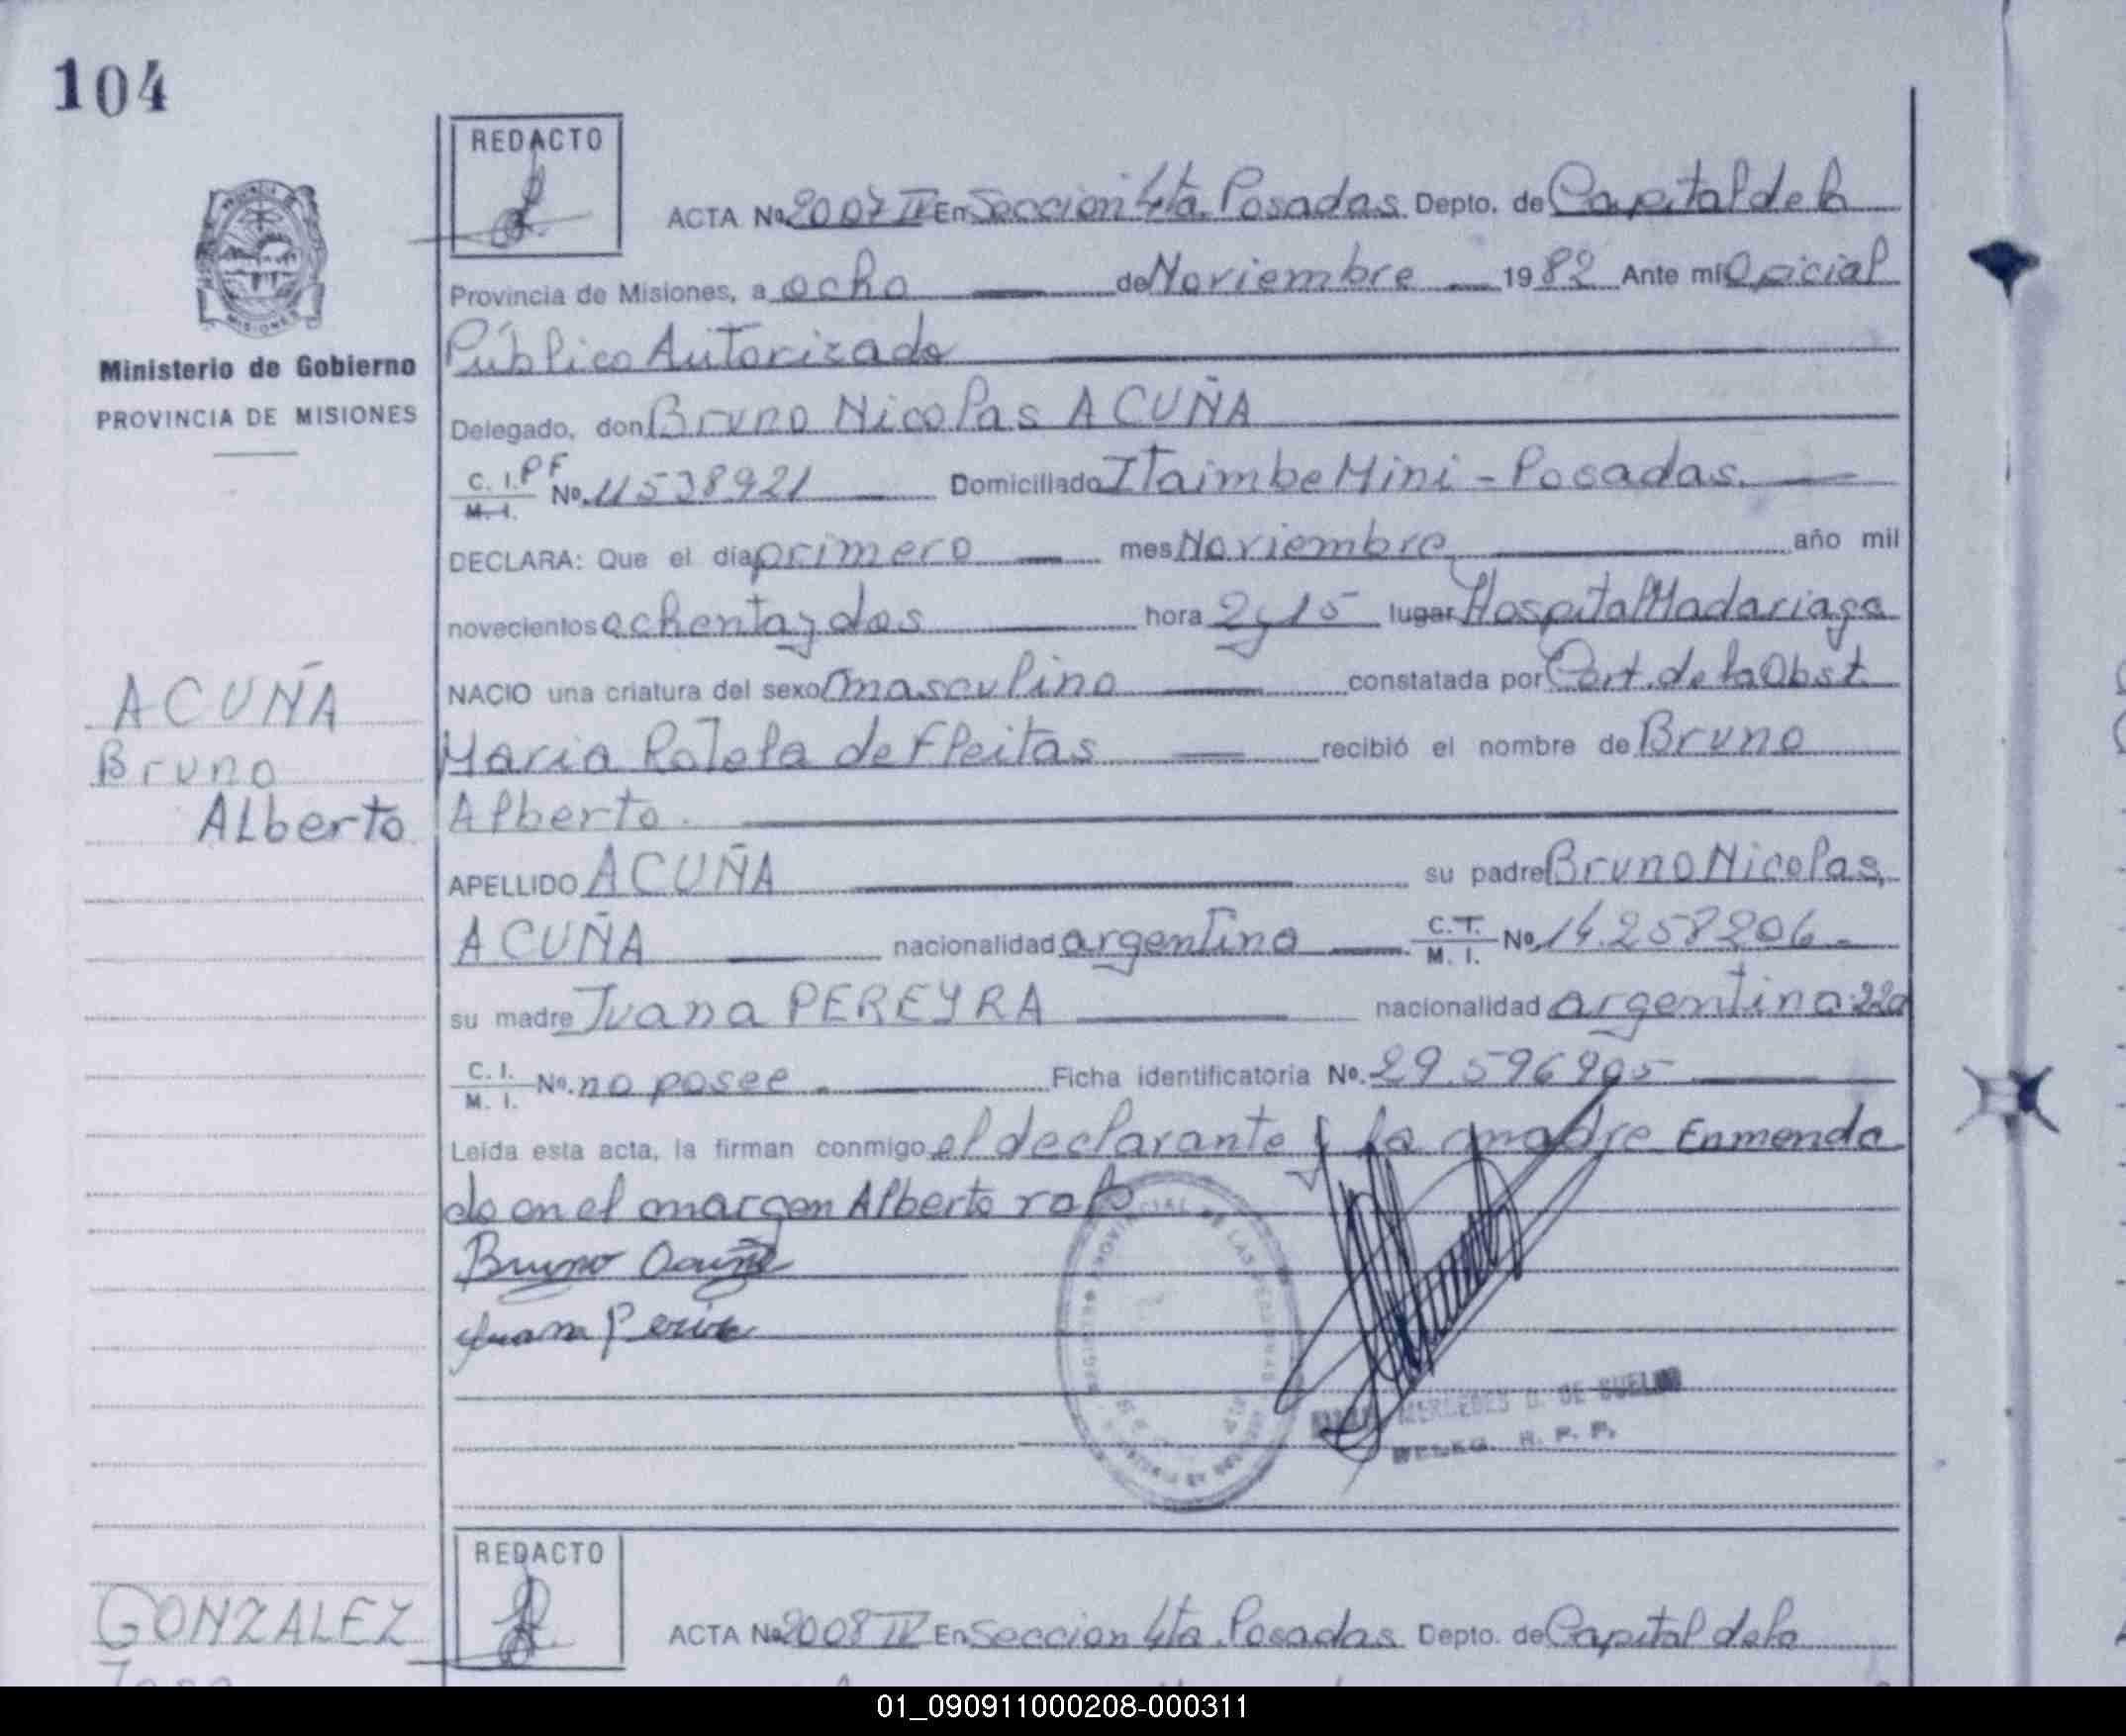 104
REDACTO
ACTA No 2007 IV En Seccion 4ta. Posadas Depto. de Capital de la
Provincia de Misiones, a ocho de Noviembre 1982 Ante mi Oficial
Público Autorizado
Ministerio de Gobierno
PROVINCIA DE MISIONES
Delegado, don Bruno Nicolas ACUÑA
C. I. PF
M. I. No. 11538921 Domiciliado Itaimbe Mini - Posadas.
DECLARA: Que el día primero mes Noviembre año mil
novecientos ochenta y dos hora 2y15 lugar Hospital Madariaga
NACIO una criatura del sexo masculino constatada por Cert. de la Obst.
ACUÑA
Bruno
Alberto
Maria Rotela de Fleitas recibió el nombre de Bruno
Alberto.
APELLIDO ACUÑA su padre Bruno Nicolas,
ACUÑA nacionalidad argentina C.T. M. I. No. 14.258206.
su madre Juana PEREYRA nacionalidad argentina 22a
C. I. M. I. No. no posee. Ficha identificatoria No. 29.596905
Leída esta acta, la firman conmigo el declarante y la madre Enmenda
do en el margen Alberto
Bruno Acuña
Juana
MERCEDES D. DE
DELEG. R. P. P.
REDACTO
GONZALEZ
ACTA No 2008 IV En Seccion 4ta. Posadas Depto. de Capital de la
01_090911000208-000311